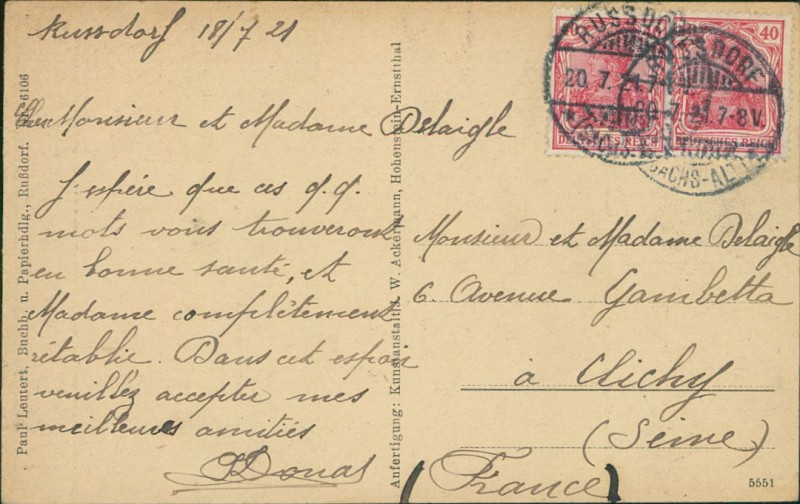 Russdorf 18/7 21
Monsieur et Madame Delaigle
J'espère que ces q.q.
mots vous trouveront
en bonne santé, et
Madame complètement
rétablie. Dans cet espoir
veuillez accepter mes
meilleures amitiés
Monsieur et Madame Delaigle
6. Avenue Gambetta
à Clichy
(Seine)
(France)
Paul Leutert, Buchh. u. Papierhdlg., Rußdorf. 6106
Anfertigung: Kunstanstalt W. Ackermann, Hohenstein-Ernstthal
5551
RUSSDORF
20.7.21.7-8V.
SACHS-ALT
40
DEUTSCHES REICH